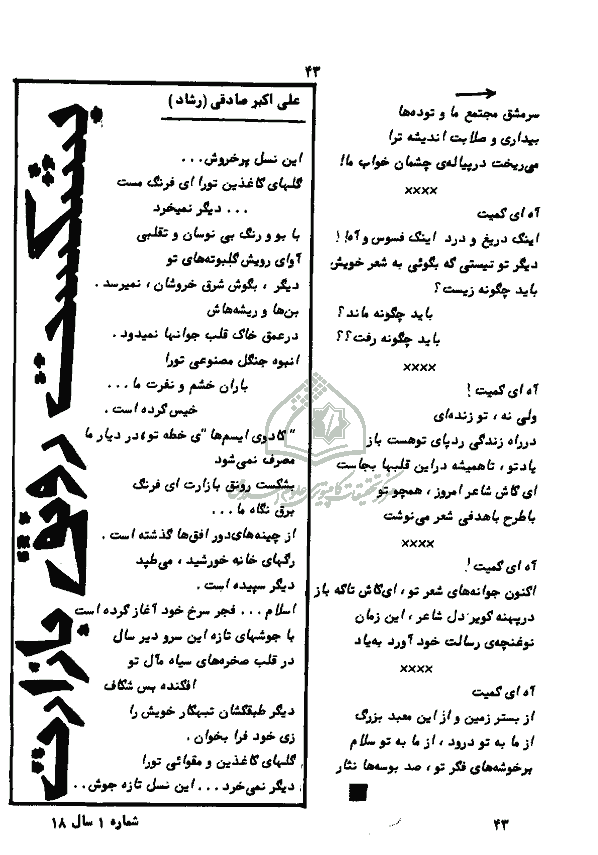 ۴۳
سرمشق مجتمع ما و توده‌ها
بیداری و صلابت اندیشه ترا
می‌ریخت درپیاله‌ی چشمان خواب ما!
××××
آه ای کمیت
اینک دریغ و درد اینک فسوس و آه! !
دیگر تو نیستی که بگوئی به شعر خویش
باید چگونه زیست؟
باید چگونه ماند؟
باید چگونه رفت؟؟
××××
آه ای کمیت !
ولی نه ، تو زنده‌ای
درراه زندگی ردپای توهست باز
یادتو ، تاهمیشه دراین قلبها بجاست
ای کاش شاعر امروز ، همچو تو
باطرح باهدفی شعر می‌نوشت
××××
آه ای کمیت !
اکنون جوانه‌های شعر تو ، ای‌کاش تاکه باز
درپهنه کویر دل شاعر ، این زمان
نوغنچه‌ی رسالت خود آورد به‌یاد
××××
آه ای کمیت
از بستر زمین و از این معبد بزرگ
از ما به تو درود ، از ما به تو سلام
برخوشه‌های فکر تو ، صد بوسه‌ها نثار
علی اکبر صادقی (رشاد)
بشکست رونق بازارت
این نسل پرخروش...
گلهای کاغذین تورا ای فرنگ مست
... دیگر نمیخرد
با بو و رنگ بی نوسان و تقلبی
آوای رویش گلبوته‌های تو
دیگر ، بگوش شرق خروشان ، نمیرسد .
بن‌ها و ریشه‌هاش
درعمق خاک قلب جوانها نمیدود .
انبوه جنگل مصنوعی تورا
باران خشم و نفرت ما ...
خیس کرده است .
"کادوی ایسم‌ها "ی خطه تو؛در دیار ما
مصرف نمی‌شود
بشکست رونق بازارت ای فرنگ
برق نگاه ما ...
از چینه‌های‌دور افق‌ها گذشته است .
رگهای خانه خورشید ، می‌طپد
دیگر سپیده است .
اسلام ... فجر سرخ خود آغاز کرده است
با جوشهای تازه این سرو دیر سال
در قلب صخره‌های سیاه مآل تو
افکنده بس شکاف
دیگر طبقکشان تبهکار خویش را
زی خود فرا بخوان .
گلهای کاغذین و مقوائی تورا
دیگر نمی‌خرد ... این نسل تازه جوش..
مرکز تحقیقات کامپیوتری علوم اسلامی
شماره ۱ سال ۱۸
۴۳